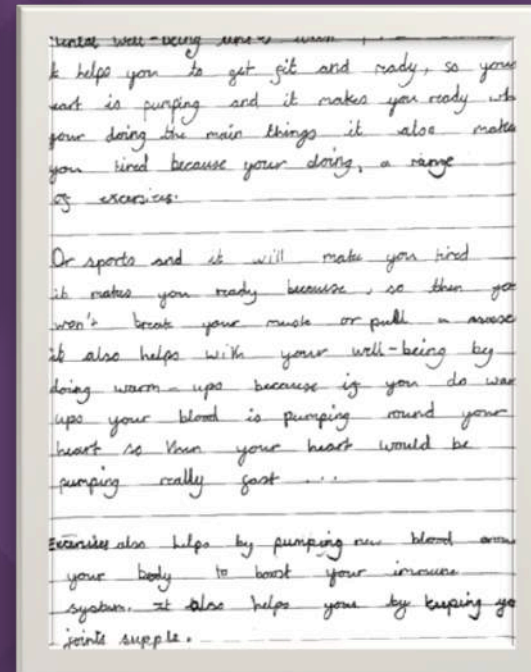 Mental well-being
it helps you to get fit and ready, so your
heart is pumping and it makes you ready
your doing the main things it also makes
you tired because your doing, a range
of
Or sports and it will make you tired
it makes you ready because, so then you
won't break your or pull a
it also helps with your well-being by
doing warm-ups because if you do war
ups your blood is pumping round your
heart so then your heart would be
pumping really fast ...
also helps by pumping new blood aroun
your body to boost your
system. It also helps your by keeping yo
joints supple.